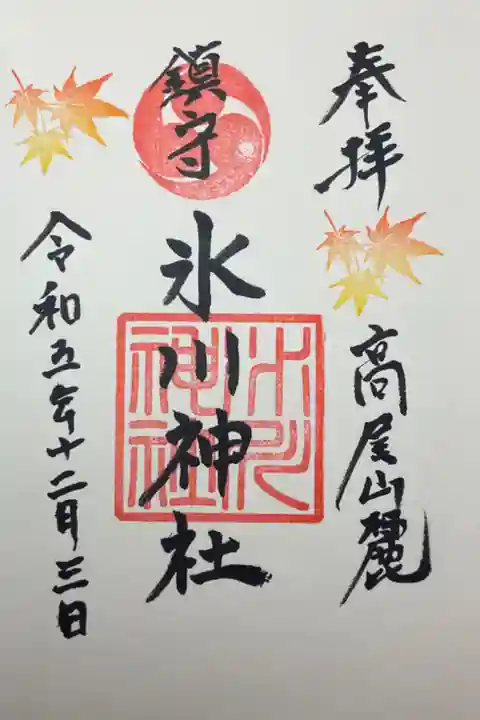 奉拝
高尾山麓
鎮守
氷川神社
氷川神社
令和五年十二月三日